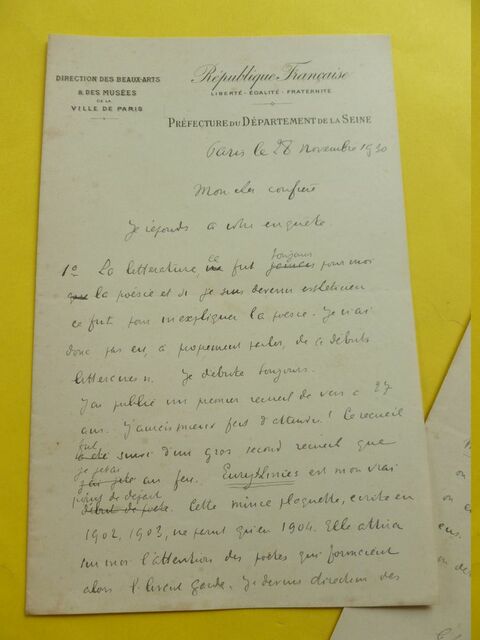 DIRECTION DES BEAUX-ARTS
& DES MUSÉES
DE LA
VILLE DE PARIS
République Française
LIBERTÉ - ÉGALITÉ - FRATERNITÉ
PRÉFECTURE DU DÉPARTEMENT DE LA SEINE
Paris le 28 novembre 1930
Mon cher confrère
Je réponds à votre enquête.
1° La littérature, ce fut toujours pour moi
la poésie et si je suis devenu esthéticien
ce fut pour m'expliquer la poésie. Je n'ai
donc pas eu, à proprement parler, de "débuts
littéraires". Je débute toujours.
J'ai publié un premier recueil de vers à 27
ans. J'aurais mieux fait d'attendre! Ce recueil
fut suivi d'un gros second recueil que
je jetai au feu. Eurythmies est mon vrai
point de départ. Cette mince plaquette, écrite en
1902, 1903, ne parut qu'en 1904. Elle attira
sur moi l'attention des poètes qui formaient
alors l'avant garde. Je devins directeur des